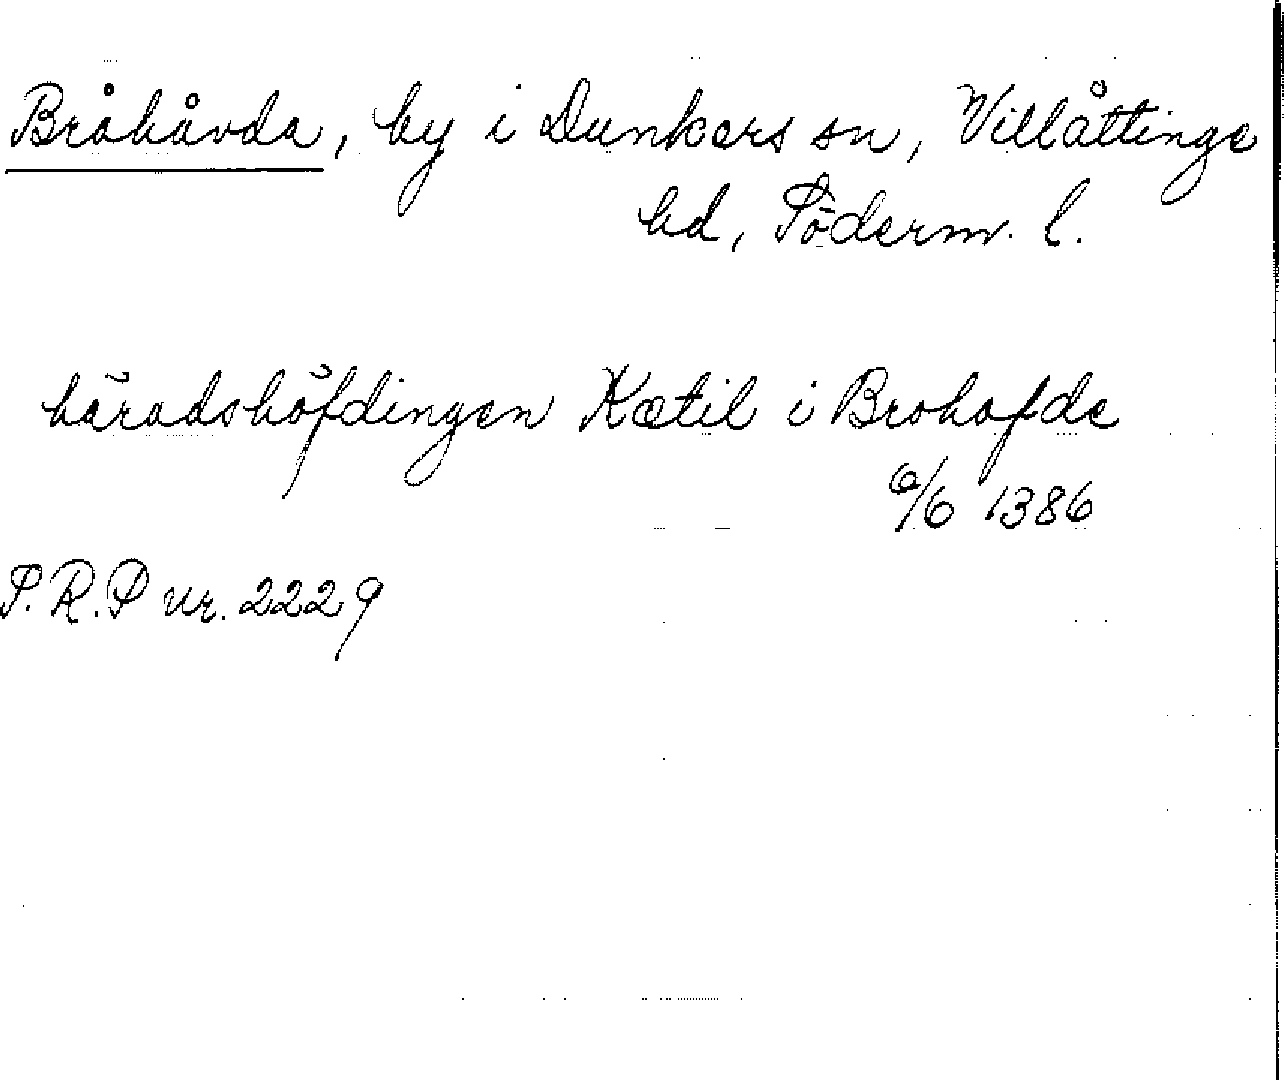 Bråhåvda, by i Dunkers sn, Villåttinge
hd, Söderm. l.
häradshöfdingen Kætil i Brohofde
6/6 1386
S.R.P nr. 2229